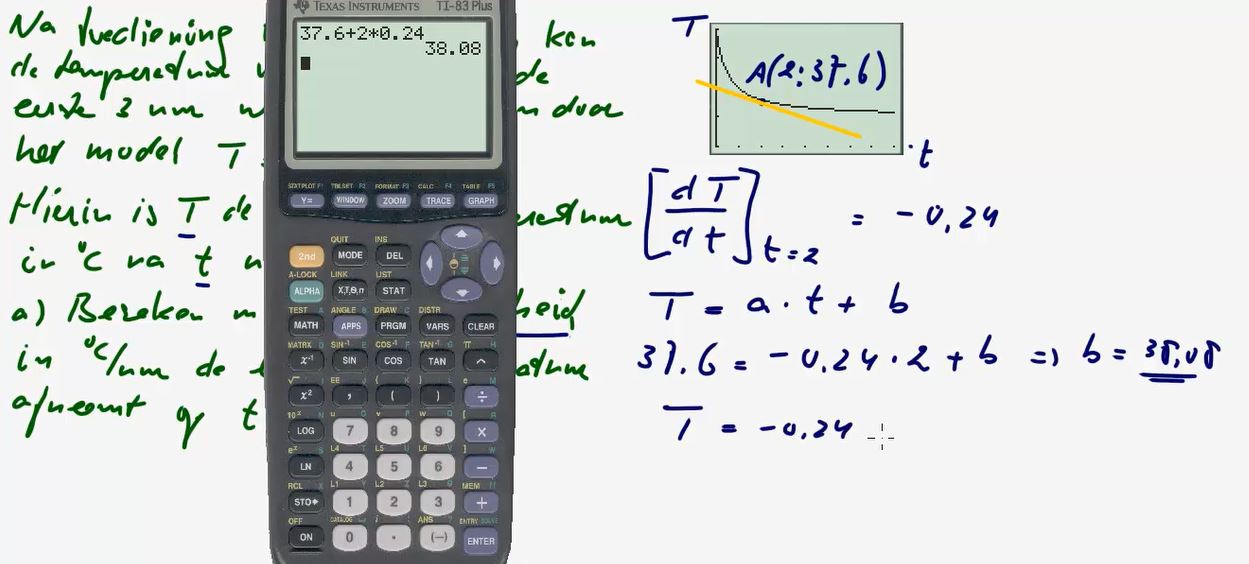 Na toediening kan
de temperatuur de
eerste 3 uur door
het model T
Hierin is T de eratuur
in °C na t
a) Bereken heid
in °C/uur de atuur
afneemt op t
TEXAS INSTRUMENTS TI-83 Plus
37.6+2*0.24
38.08
STATPLOT F1 TBLSET F2 FORMAT F3 CALC F4 TABLE F5
Y= WINDOW ZOOM TRACE GRAPH
QUIT INS
2nd MODE DEL
A-LOCK LINK LIST
ALPHA X,T,Θ,n STAT
TEST A ANGLE B DRAW C DISTR
MATH APPS PRGM VARS CLEAR
MATRX D SIN⁻¹ E COS⁻¹ F TAN⁻¹ G π H
x⁻¹ SIN COS TAN ^
√ I EE J { K } L e M
x² , ( ) ÷
10ˣ N u O v P w Q [ R
LOG 7 8 9 ×
eˣ S L4 T L5 U L6 V ] W
LN 4 5 6 −
RCL X L1 Y L2 Z L3 θ MEM "
STO 1 2 3 +
OFF CATALOG i : ANS ? ENTRY SOLVE
ON 0 . (−) ENTER
T
A(2;37,6)
t
[dT/dt] t=2 = -0,24
T = a · t + b
37.6 = -0.24 · 2 + b => b = 38,08
T = -0.24